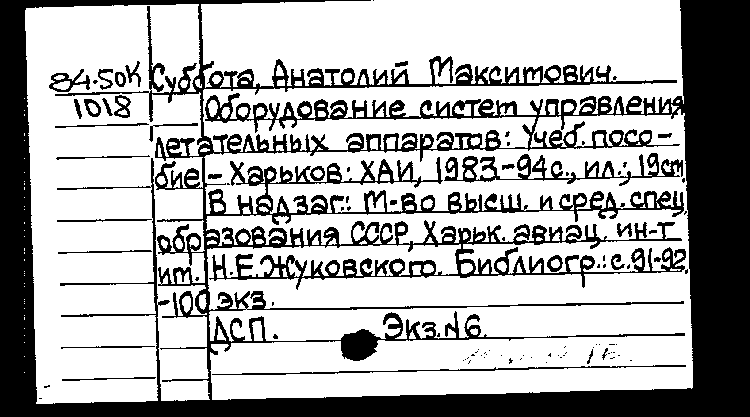 84-50К Суббота, Анатолий Максимович.
1018 Оборудование систем управления
летательных аппаратов: Учеб. посо-
бие - Харьков: ХАИ, 1983.-94с., ил.; 19см
В надзаг.: М-во высш. и сред. спец.
образования СССР, Харьк. авиац. ин-т
им. Н.Е.Жуковского. Библиогр.: с.91-92.
-100 экз.
ДСП. Экз.№6.